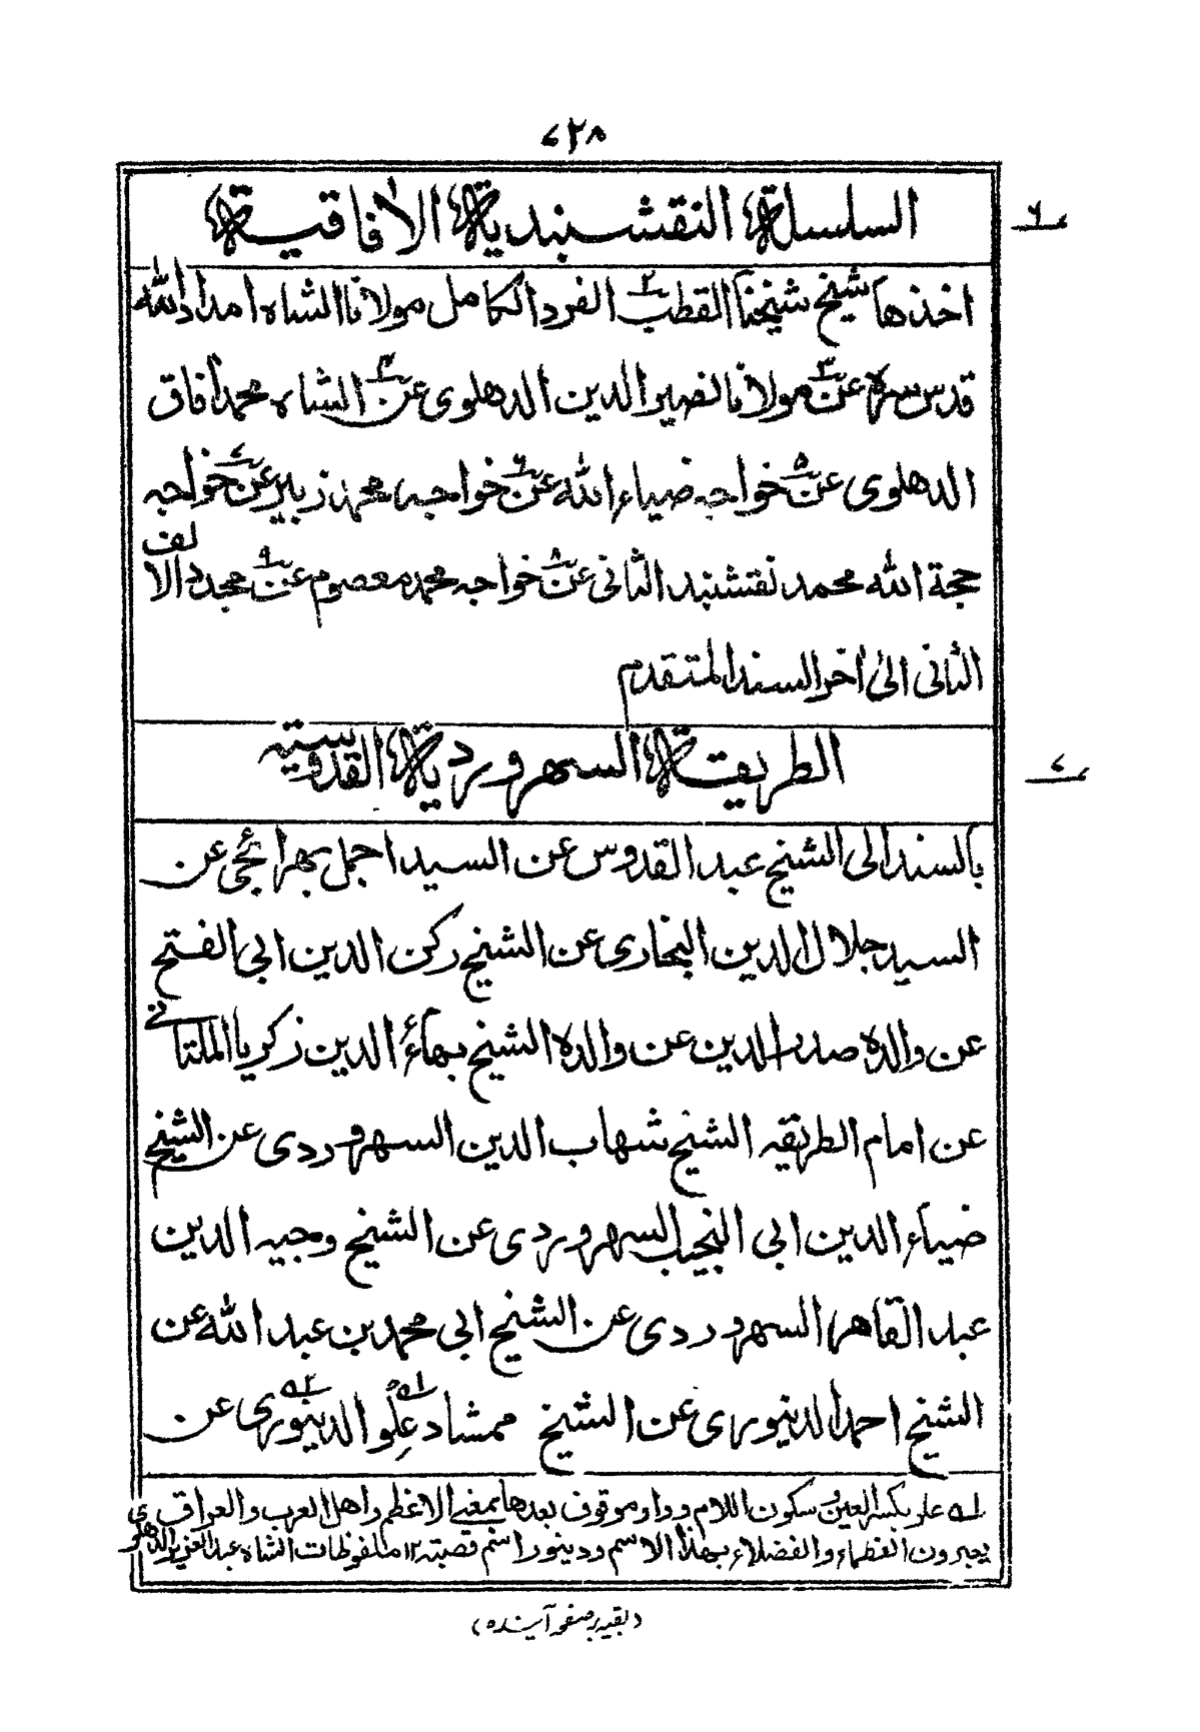 ٧٢٨
السلسلة النقشبندية الآفاقية
٦
اخذها شيخ شيخنا القطب٢ الفرد الكامل مولانا الشاه امداد الله
قدس سره عن٣ مولانا نصير الدين الدهلوى عن٤ الشاه محمد افاق
الدهلوى عن٥ خواجه ضياء الله عن٦ خواجه محمد زبير عن٧ خواجه
حجة الله محمد نقشبند الثانى عن٨ خواجه محمد معصوم عن٩ مجدد الالف
الثانى الى اخر السند المتقدم
الطريقة السهروردية القدوسيه
٧
بالسند الى الشيخ عبد القدوس عن السيد اجمل بهرائچى عن
السيد جلال الدين البخارى عن الشيخ ركن الدين ابى الفتح
عن والده صدر الدين عن والده الشيخ بهاء الدين زكريا الملتانى
عن امام الطريقه الشيخ شهاب الدين السهروردى عن الشيخ
ضياء الدين ابى النجيب السهروردى عن الشيخ وجيه الدين
عبد القاهر السهروردى عن الشيخ ابى محمد بن عبد الله عن
الشيخ احمد الدينورى عن الشيخ ممشاد عِلو١ الدينورى٢ عن
١ علو بكسر العين وسكون اللام وواو موقوف بعدها بمعنى الاعظم واهل العرب والعراق
يجبرون العظماء والفضلاء بهذا الاسم ودينور اسم قصبة ١٢ ملفوظات الشاه عبد العزيز الدهلوى
(بقيه بر صفحه آينده)